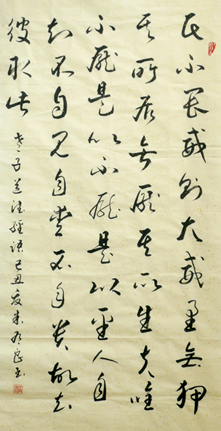 民不畏威則大威至無狎
其所居無厭其所生夫唯
不厭是以不厭是以聖人自
知不自見自愛不自貴故去
彼取此
老子道德經語己丑夏朱良書